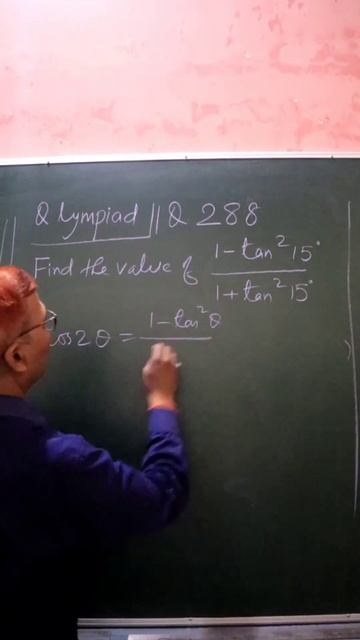 Olympiad || Q 288
Find the value of (1-tan²15°)/(1+tan²15°)
cos2θ = 1-tan²θ